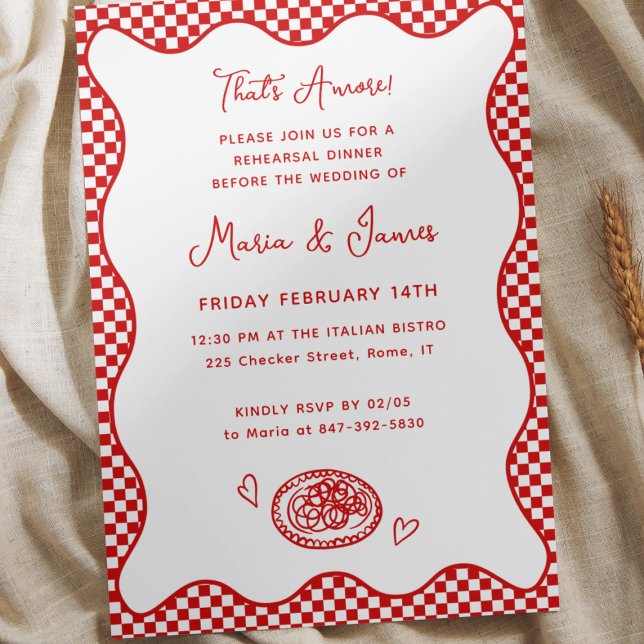 That's Amore!
PLEASE JOIN US FOR A
REHEARSAL DINNER
BEFORE THE WEDDING OF
Maria & James
FRIDAY FEBRUARY 14TH
12:30 PM AT THE ITALIAN BISTRO
225 Checker Street, Rome, IT
KINDLY RSVP BY 02/05
to Maria at 847-392-5830